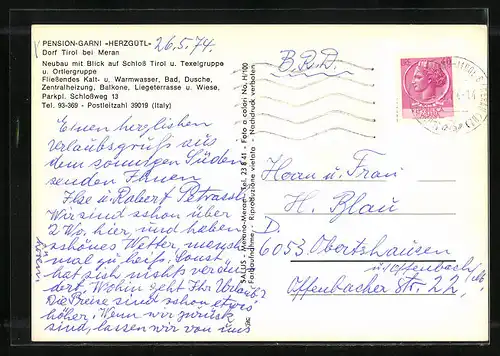 PENSION-GARNI «HERZGÜTL»
Dorf Tirol bei Meran
Neubau mit Blick auf Schloß Tirol u. Texelgruppe
u. Ortlergruppe
Fließendes Kalt- u. Warmwasser, Bad, Dusche,
Zentralheizung, Balkone, Liegeterrasse u. Wiese,
Parkpl. Schloßweg 13
Tel. 93-369 - Postleitzahl 39019 (Italy)
26.5.74.
Einen herzlichen
Urlaubsgruß aus
dem sonnigen Süden
senden Ihnen
Ilse u. Robert
Wir sind schon über
2 Wo. hier, und haben
schönes Wetter, manch
mal zu heiß. Sonst
hat sich nichts verän
dert. Wohin geht Ihr Urlaub?
Die Preise sind schon etwas
höher. Wenn wir zurück
sind, lassen wir von uns
hören!
Merano-Meran - Tel. 23 8 41 - Foto a colori No. H/100
Farbaufnahme - Riproduzione vietata - Nachdruck verboten
B.R.D.
Herrn u. Frau
H. Blau
D.
6053 Obertshausen
u/Offenbach/M.
Offenbacher Str. 22